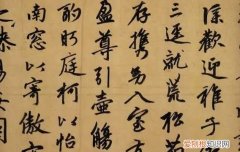 僕歡迎稚子
三逕就荒松
存携幼入室
盈尊引壺觴
酌眄庭柯以怡
南窓以寄傲
之易安園